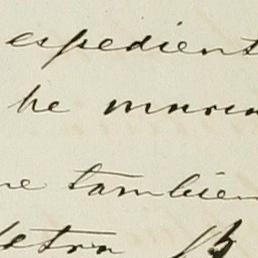 espedient
he
me tambien
letra B